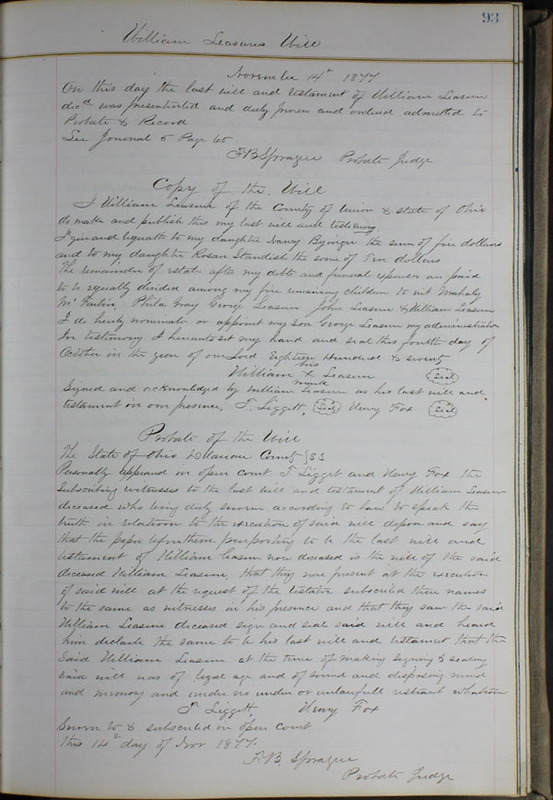 93
William Leasures Will
November 14th 1877
On this day the last will and testament of William Leasure
decd was presented and duly proven and ordered admitted to
Probate & Record
See Journal 5 Page 65
F.B. Sprague Probate Judge
Copy of the Will
I William Leasure of the County of Union & state of Ohio
do make and publish this my last will and testimony
I give and bequath to my daughter Nancy the sum of five dollars
and to my daughter Rosan Standish the some of Ten dollars
The remainder of estate after my debts and funeral expenses are paid
to be equally divided among my five remaining children to wit Mahaly
Phila May George Leasure John Leasure & William Leasure
I do herby nominate or appoint my son George Leasure my administrator
In testimony I hereunto set my hand and seal this fourth day of
October in the year of our Lord Eighteen Hundred & seventy
his
William X Leasure Seal
mark
Signed and acknowledged by William Leasure as his last will and
testament in our presence, T. Liggett, Seal Henry Fox Seal
Probate of the Will
The State of Ohio Delaware County } SS
Personally appeared in open court T Ligget and Henry Fox the
Subscribing witnesses to the last will and testament of William Leasure
deceased who being duly sworn according to law to speak the
truth in relation to the execution of said will depose and say
that the paper before them purporting to be the last will and
testament of William Leasure now deceased is the will of the said
deceased William Leasure, that they were present at the execution
of said will at the request of the testator subscribed their names
to the same as witnesses in his presence and that they saw the said
William Leasure deceased sign and seal said will and heard
him declare the same to be his last will and testament that the
Said William Leasure at the time of making signing & sealing
said will was of legal age and of sound and disposing mind
and memory and under no under or unlawfull restraint whatsoever
T Liggett, Henry Fox
Sworn to & subscribed in open court
this 14th day of Nov 1877.
F.B. Sprague
Probate Judge